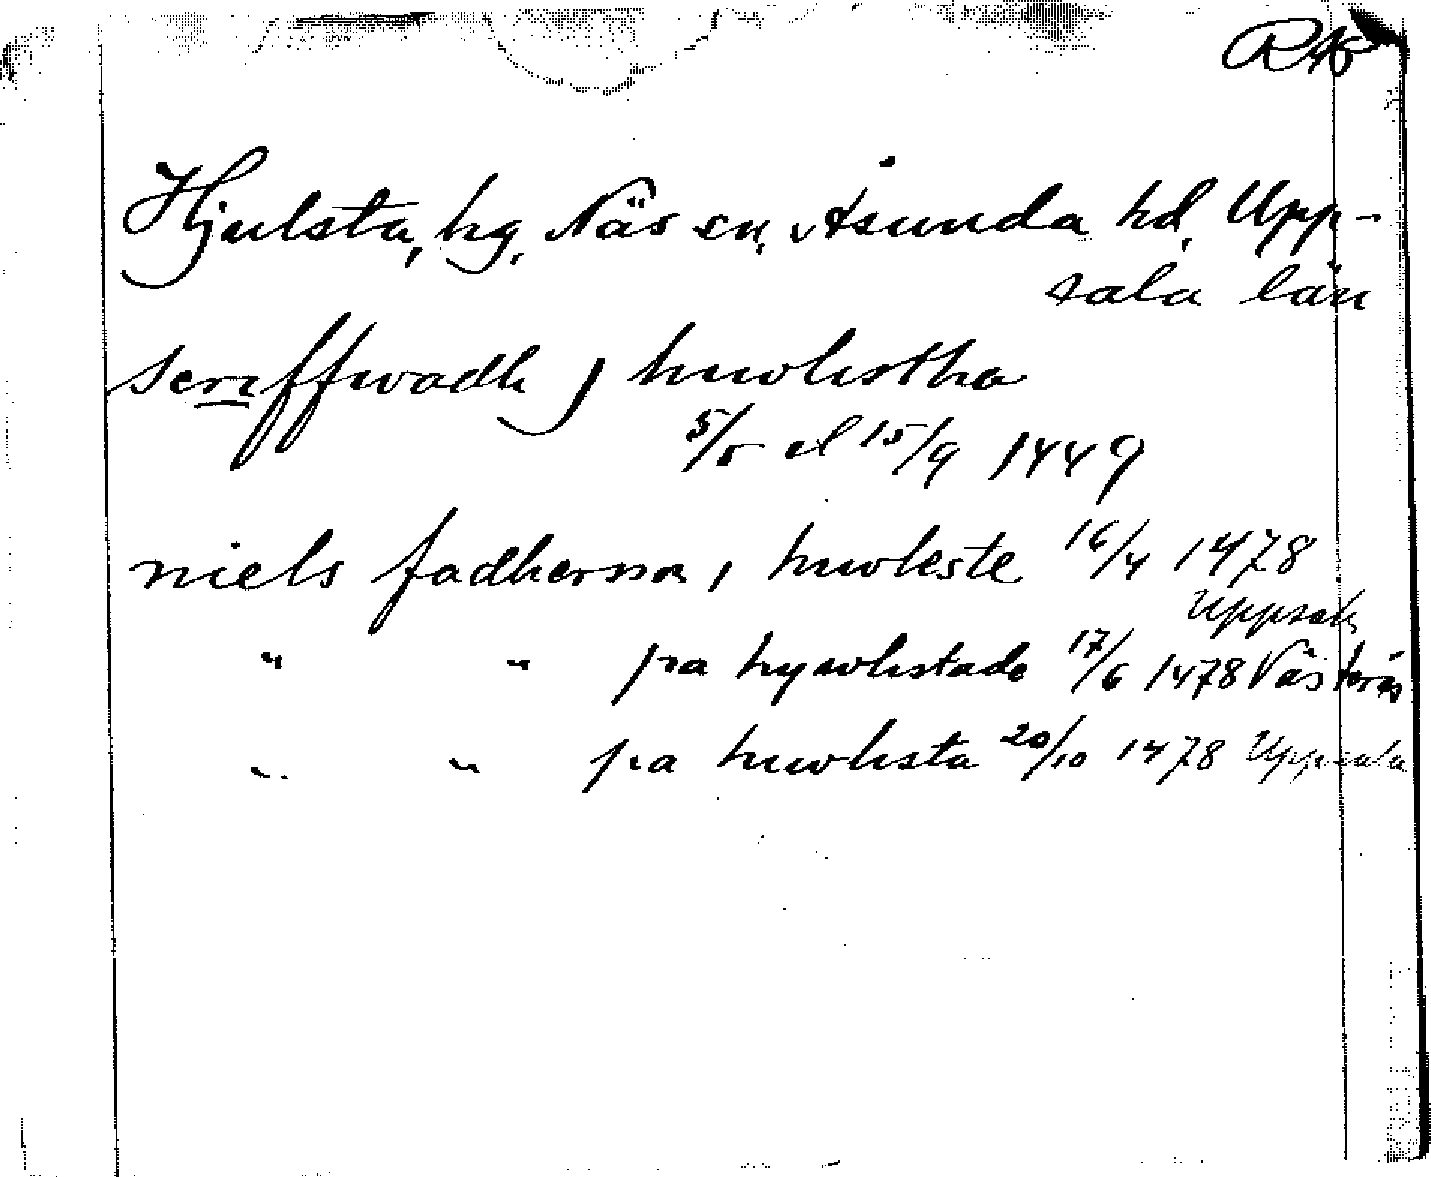 RAp
Hjulsta, hg, Näs sn, Åsunda hd, Upp-
sala län
scriffwadh j hwlistha
5/5 el 15/9 1449
niels fadhersson, i hwleste 16/4 1478
Uppsala
" " pa hywlistade 17/6 1478 Västerås
" " pa hwlista 20/10 1478 Uppsala